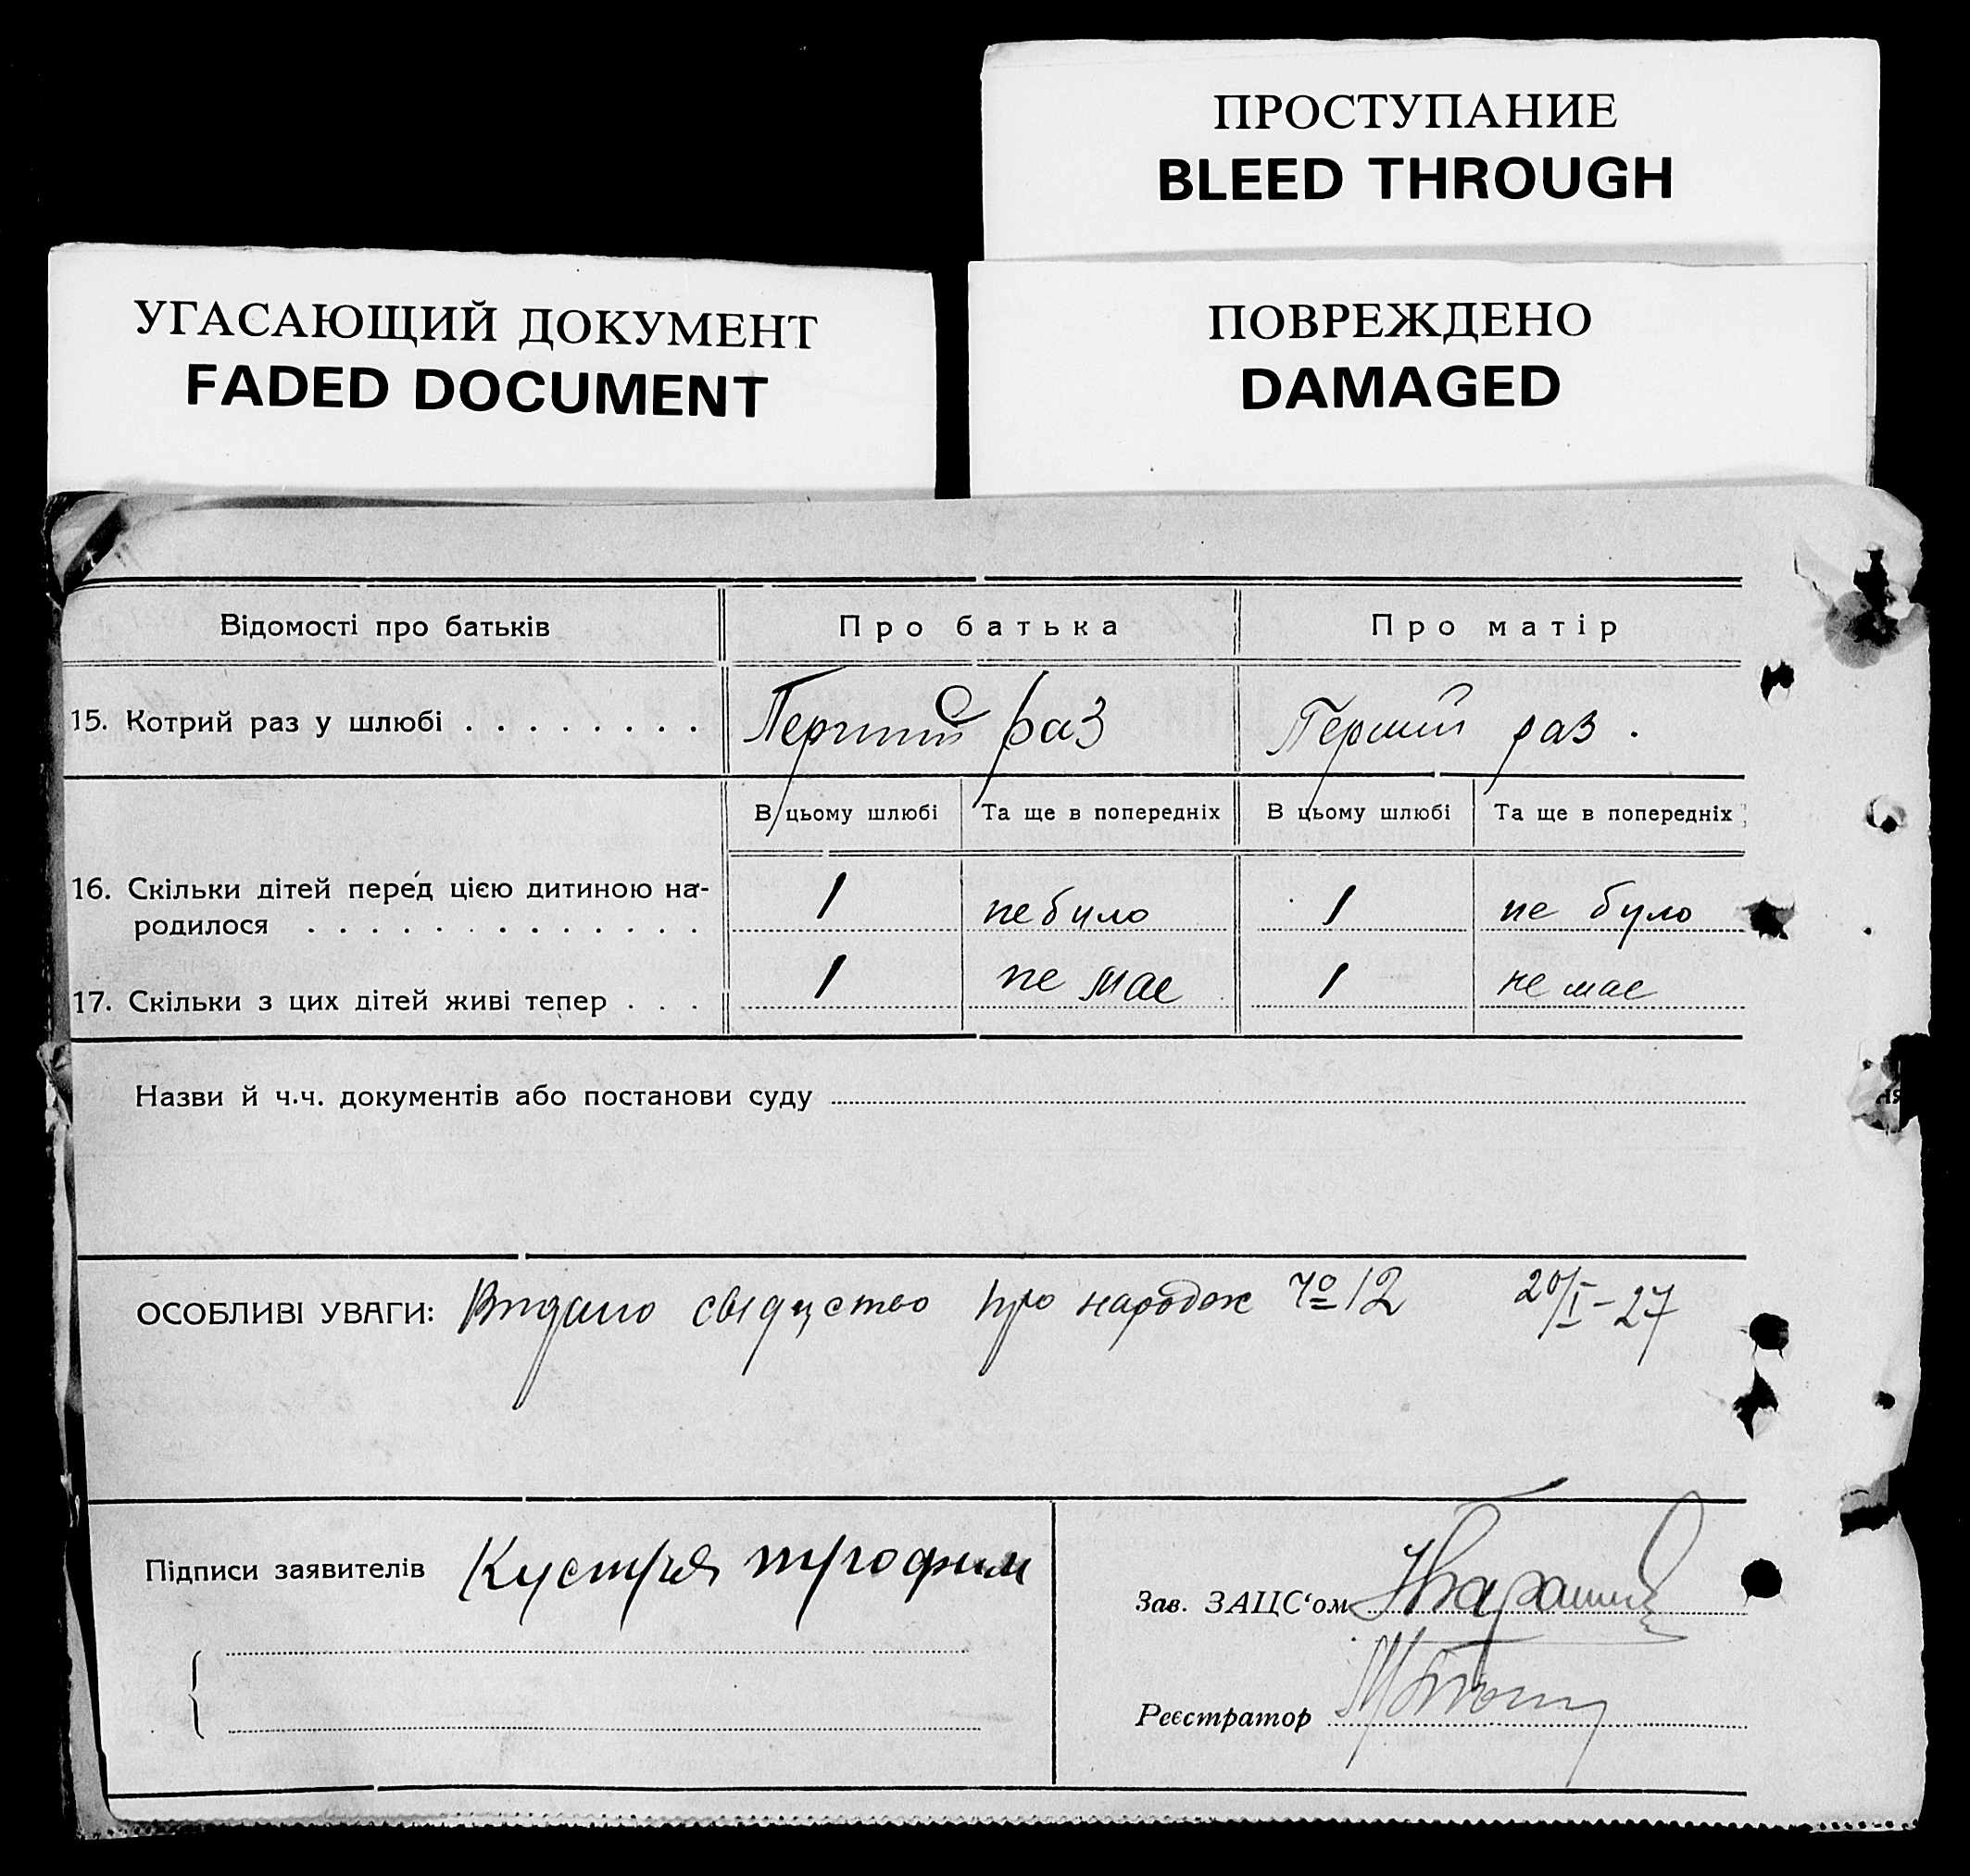 ПРОСТУПАНИЕ
BLEED THROUGH
УГАСАЮЩИЙ ДОКУМЕНТ
FADED DOCUMENT
ПОВРЕЖДЕНО
DAMAGED
Відомості про батьків Про батька Про матір
15. Котрий раз у шлюбі . . . . . . . . Перший раз Перший раз .
В цьому шлюбі Та ще в попередніх В цьому шлюбі Та ще в попередніх
16. Скільки дітей перед цією дитиною на-
родилося . . . . . . . . . . . . . 1 не було 1 не було
17. Скільки з цих дітей живі тепер . . . 1 не має 1 не має
Назви й ч.ч. документів або постанови суду
ня
ОСОБЛИВІ УВАГИ: Видано свідуство про народж № 12 20/I-27
Підписи заявителів Кустря трофим
Зав. ЗАЦС‘ом
Реєстратор